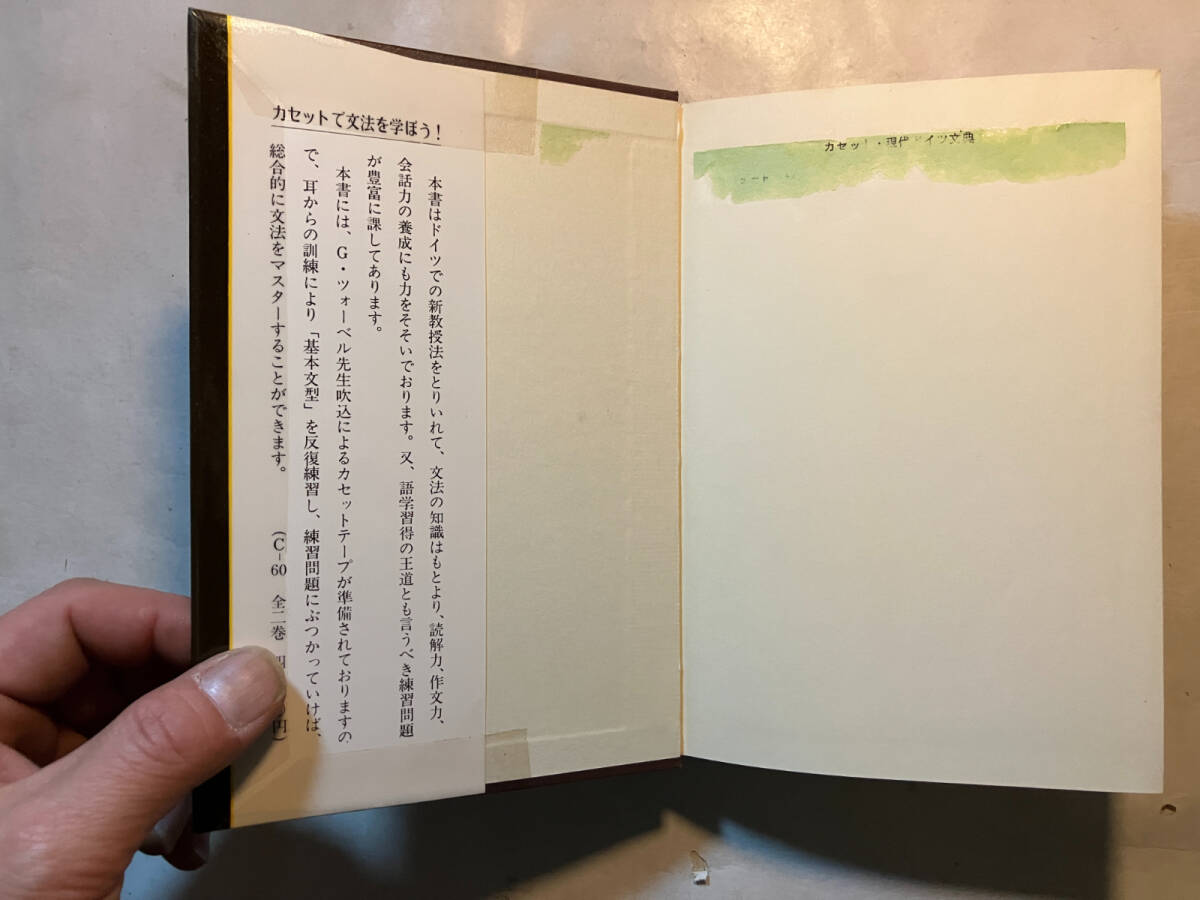 カセットで文法を学ぼう！
本書はドイツでの新教授法をとりいれて、文法の知識はもとより、読解力、作文力、
会話力の養成にも力をそそいでおります。又、語学習得の王道とも言うべき練習問題
が豊富に課してあります。
本書には、G・ツォーベル先生吹込によるカセットテープが準備されておりますの
で、耳からの訓練により「基本文型」を反復練習し、練習問題にぶつかっていけば、
総合的に文法をマスターすることができます。
（C-60 全二巻 円）
カセット・現代ドイツ文典